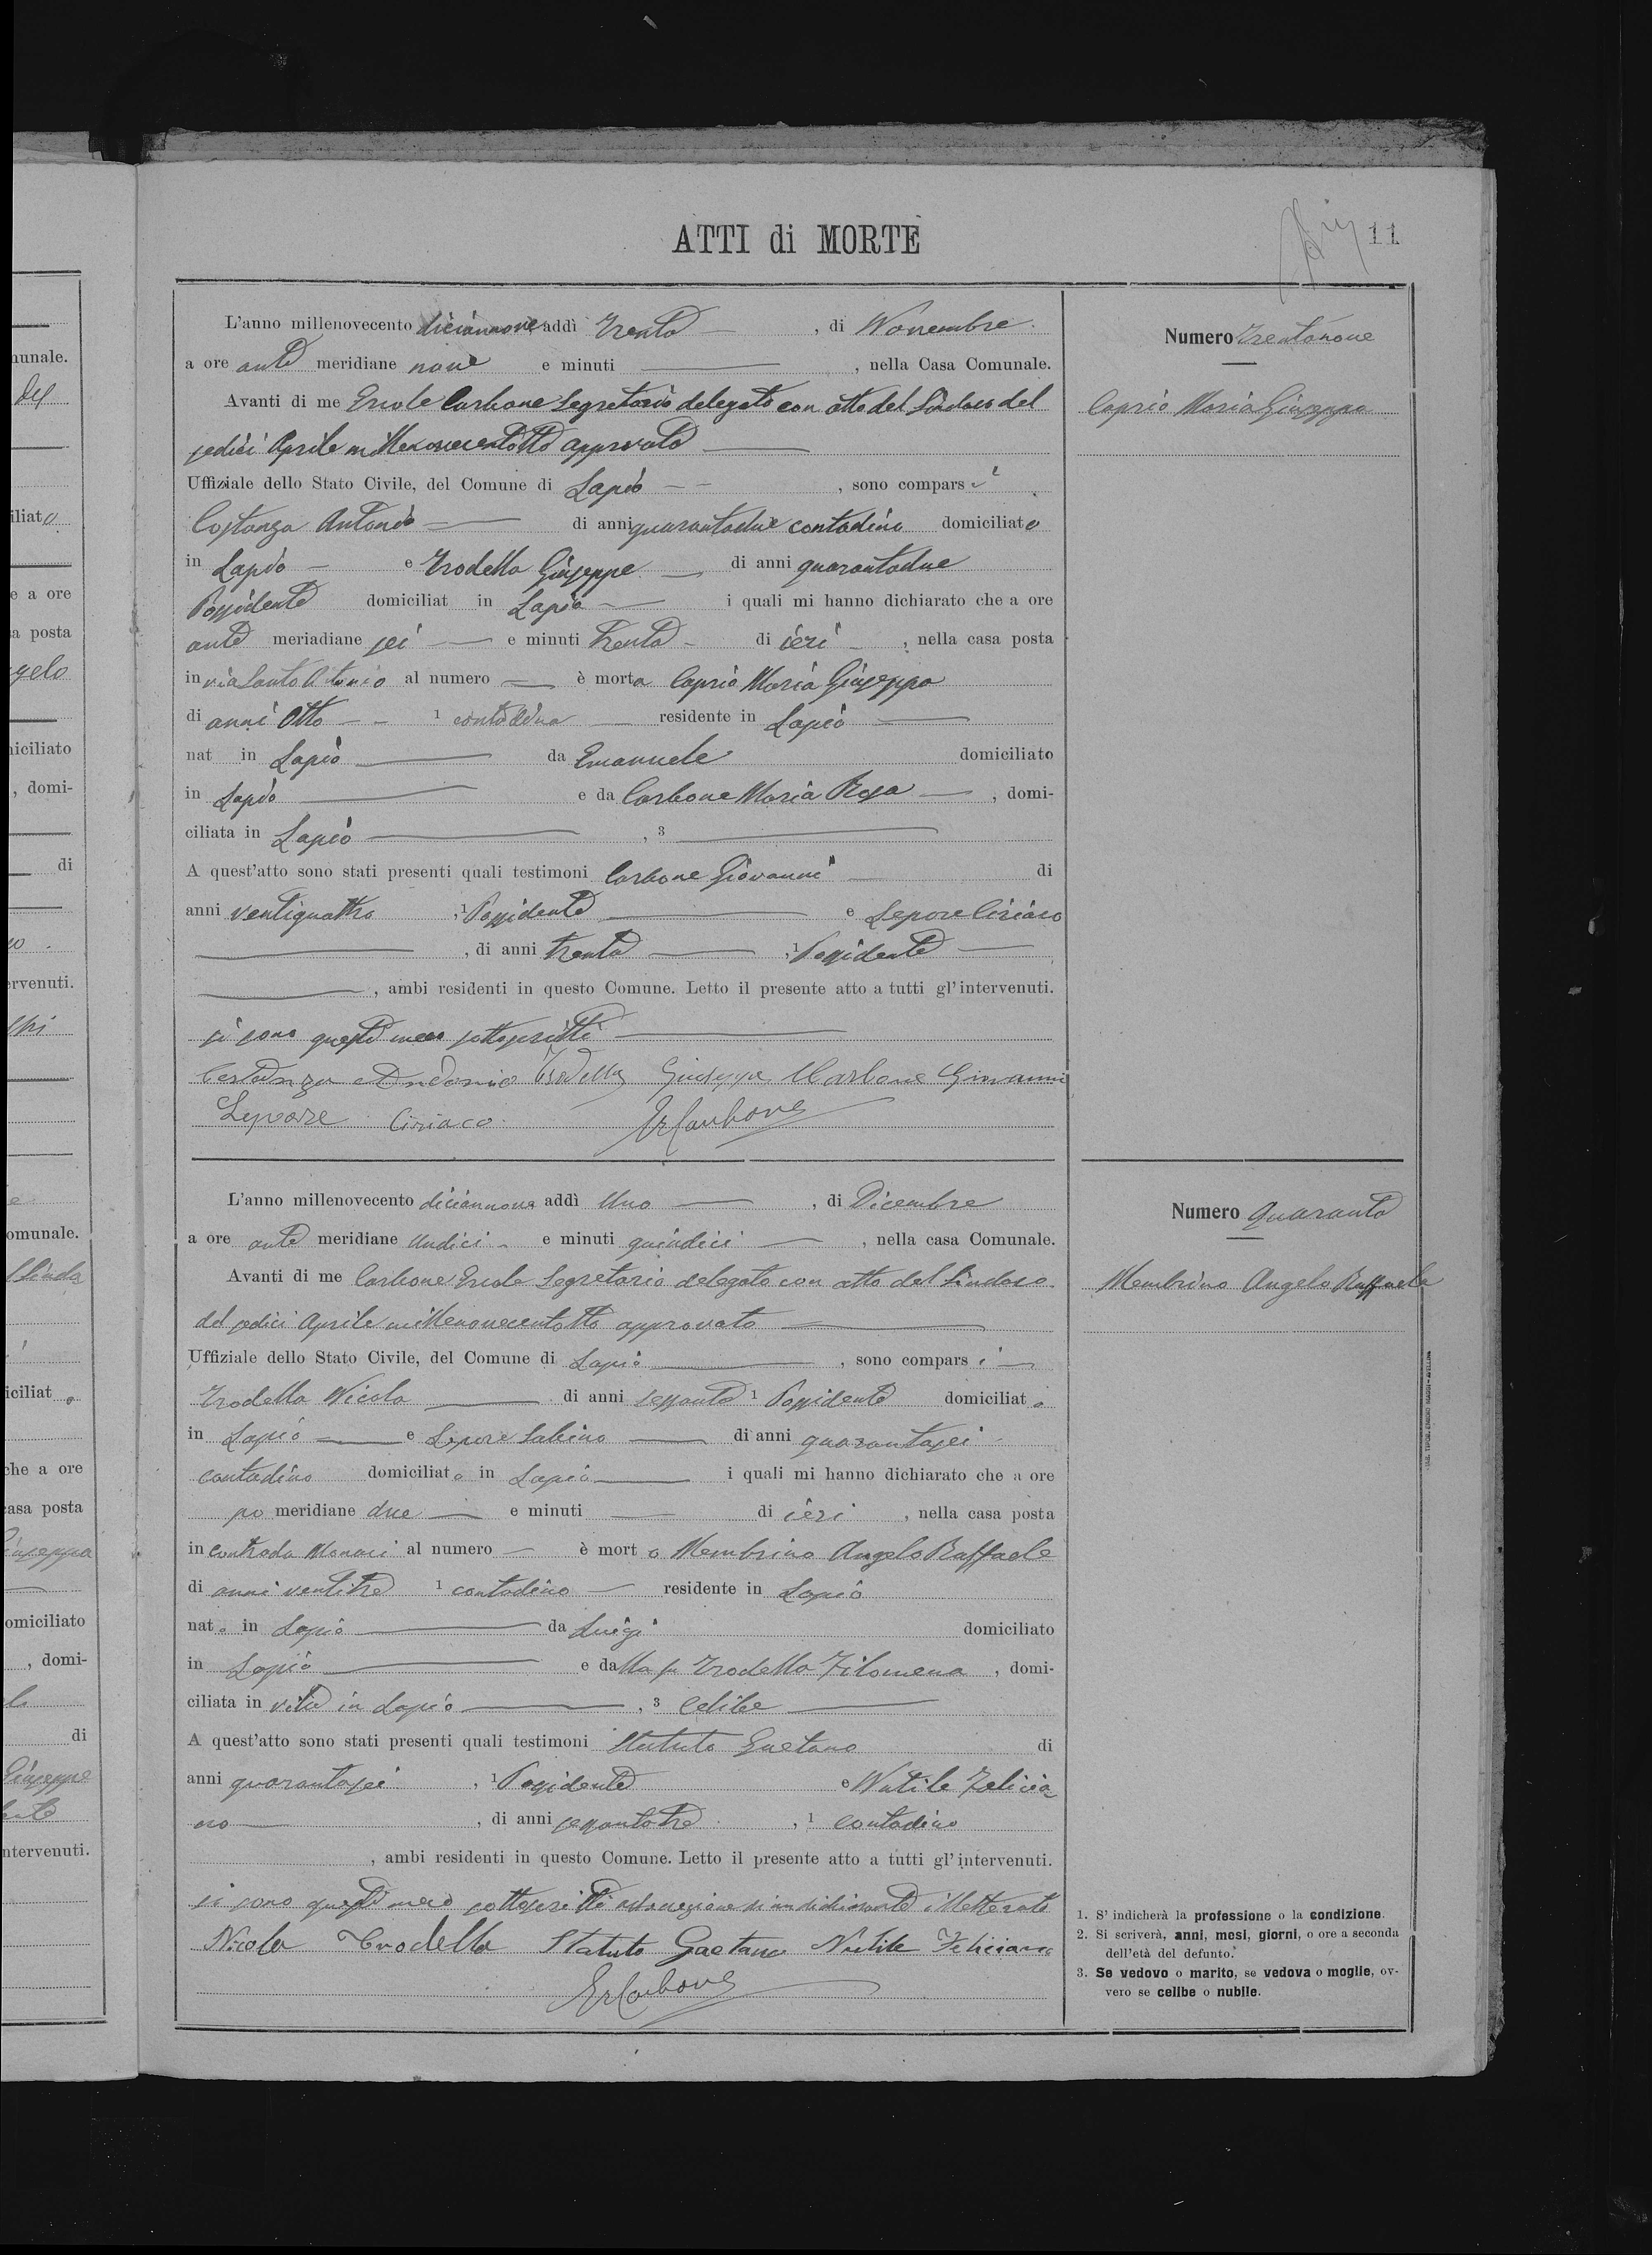 ATTI di MORTE
11
L'anno millenovecento diciannove addì Trenta, di Novembre
a ore ante meridiane nove e minuti, nella Casa Comunale.
Avanti di me Ercole Carbone Segretario delegato con atto del Sindaco del
sedici Aprile millenovecentotto approvato
Uffiziale dello Stato Civile, del Comune di Lapio, sono comparsi
Costanza Antonio di anni quarantadue contadino domiciliato
in Lapio e Trodella Giuseppe di anni quarantadue
Possidente domiciliat in Lapio i quali mi hanno dichiarato che a ore
ante meriadiane sei e minuti Trenta di ieri, nella casa posta
in via Santo Antonio al numero è morta Caprio Maria Giuseppa
di anni Otto 1 contadina residente in Lapio
nat in Lapio da Emanuele domiciliato
in Lapio e da Carbone Maria Rosa, domi-
ciliata in Lapio, 3
A quest'atto sono stati presenti quali testimoni Carbone Giovanni di
anni ventiquattro, 1 Possidente e Lepore Ciriaco
, di anni trenta, 1 Possidente
, ambi residenti in questo Comune. Letto il presente atto a tutti gl'intervenuti.
si sono questi meco sottoscritti
Costanza Andonio Trodella Giuseppe Carbone Giovanni
Lepore Ciriaco ErCarbone
Numero Trentanove
Caprio Maria Giuseppa
L'anno millenovecento diciannove addì Uno, di Dicembre
a ore ante meridiane Undici e minuti quindici, nella casa Comunale.
Avanti di me Carbone Ercole Segretario delegato con atto del Sindaco
del sedici Aprile millenovecentotto approvato
Uffiziale dello Stato Civile, del Comune di Lapio, sono comparsi
Trodella Nicola di anni sessanta 1 Possidente domiciliato
in Lapio e Lepore Sabino di anni quarantasei
contadino domiciliato in Lapio i quali mi hanno dichiarato che a ore
po meridiane due e minuti di ieri, nella casa posta
in contrada al numero è morto Membrino Angelo Raffaele
di anni ventitre 1 contadino residente in Lapio
nato in Lapio da Luigi domiciliato
in Lapio e dalla fu Trodella Filomena, domi-
ciliata in vita in Lapio, 3 Celibe
A quest'atto sono stati presenti quali testimoni Statuto Gaetano di
anni quarantasei, 1 Possidente e Nutile Felicia
no, di anni sessantatre, 1 contadino
, ambi residenti in questo Comune. Letto il presente atto a tutti gl'intervenuti.
si sono questi meco sottoscritti ad eccezione di un dichiarante illetterato
Nicola Trodella Statuto Gaetano Nutile Feliciano
ErCarbone
Numero Quaranta
Membrino Angelo Raffaele
1. S' indicherà la professione o la condizione.
2. Si scriverà, anni, mesi, giorni, o ore a seconda
dell'età del defunto.
3. Se vedovo o marito, se vedova o moglie, ov-
vero se celibe o nubile.